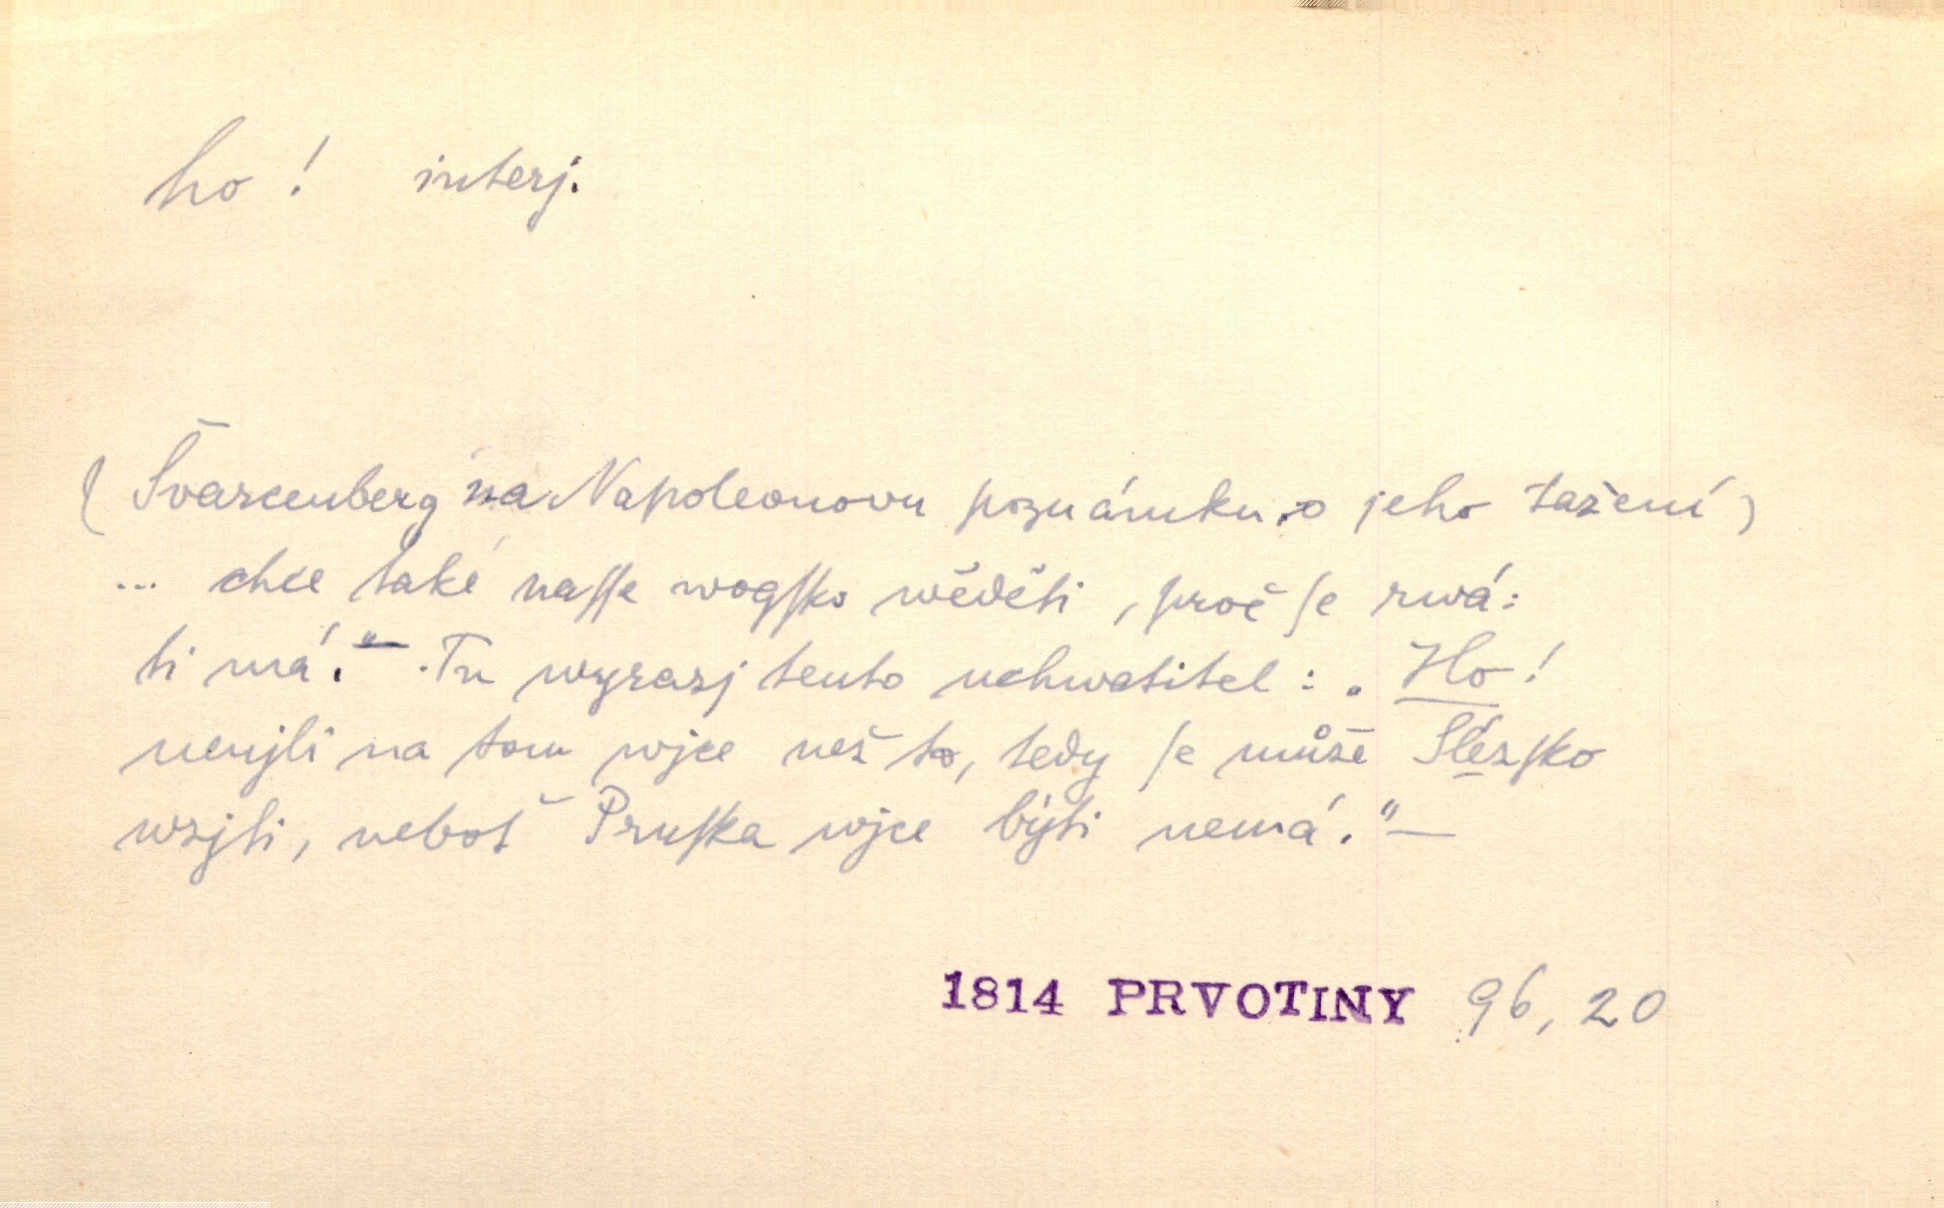 ho! interj.
(Švarcenberg na Napoleonovu poznámku o jeho tažení)
... chce také naſſe wogſko wěděti, proč ſe rwá:
ti má." — Tu wyrazj tento uchwatitel: „Ho!
nenjli na tom wjce než to, tedy ſe může Slézſko
wzjti, neboť Pruſka wjce býti nemá." —
1814 PRVOTINY 96, 20